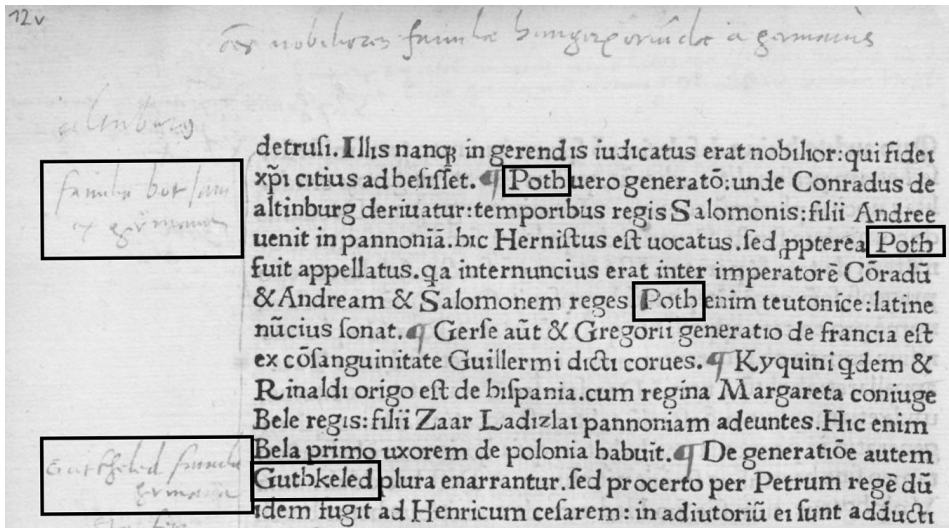 12v
familiae a germanis
altinburg
familia bot
ex germania
detrusi. Illis nanqꝫ in gerendis iudicatus erat nobilior: qui fidei
xp̄i citius adhesisset. ¶ Poth uero generatō: unde Conradus de
altinburg deriuatur: temporibus regis Salomonis: filii Andree
uenit in pannoniā. hic Hernistus est uocatus. sed ꝓpterea Poth
fuit appellatus. qa internuncius erat inter imperatorē Cōradū
& Andream & Salomonem reges Poth enim teutonice: latine
nūcius sonat. ¶ Gerse aūt & Gregorii generatio de francia est
ex cōsanguinitate Guillermi dicti corues. ¶ Kyquini qdem &
Rinaldi origo est de hispania. cum regina Margareta coniuge
Bele regis: filii Zaar Ladizlai pannoniam adeuntes. Hic enim
Bela primo uxorem de polonia habuit. ¶ De generatiōe autem
Gutkheled familia
germania
Guthkeled plura enarrantur. sed procerto per Petrum regē dū
idem fugit ad Henricum cesarem: in adiutoriū ei sunt adducti